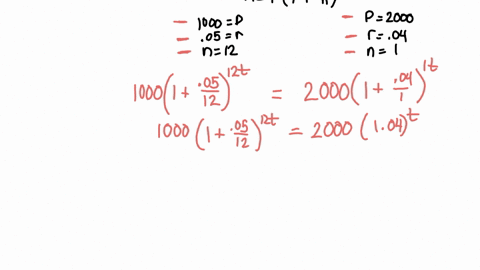 — 1000 = P — P = 2000
— .05 = r — r = .04
— n = 12 — n = 1
1000(1 + .05/12)^12t = 2000(1 + .04/1)^1t
1000(1 + .05/12)^12t = 2000(1.04)^t